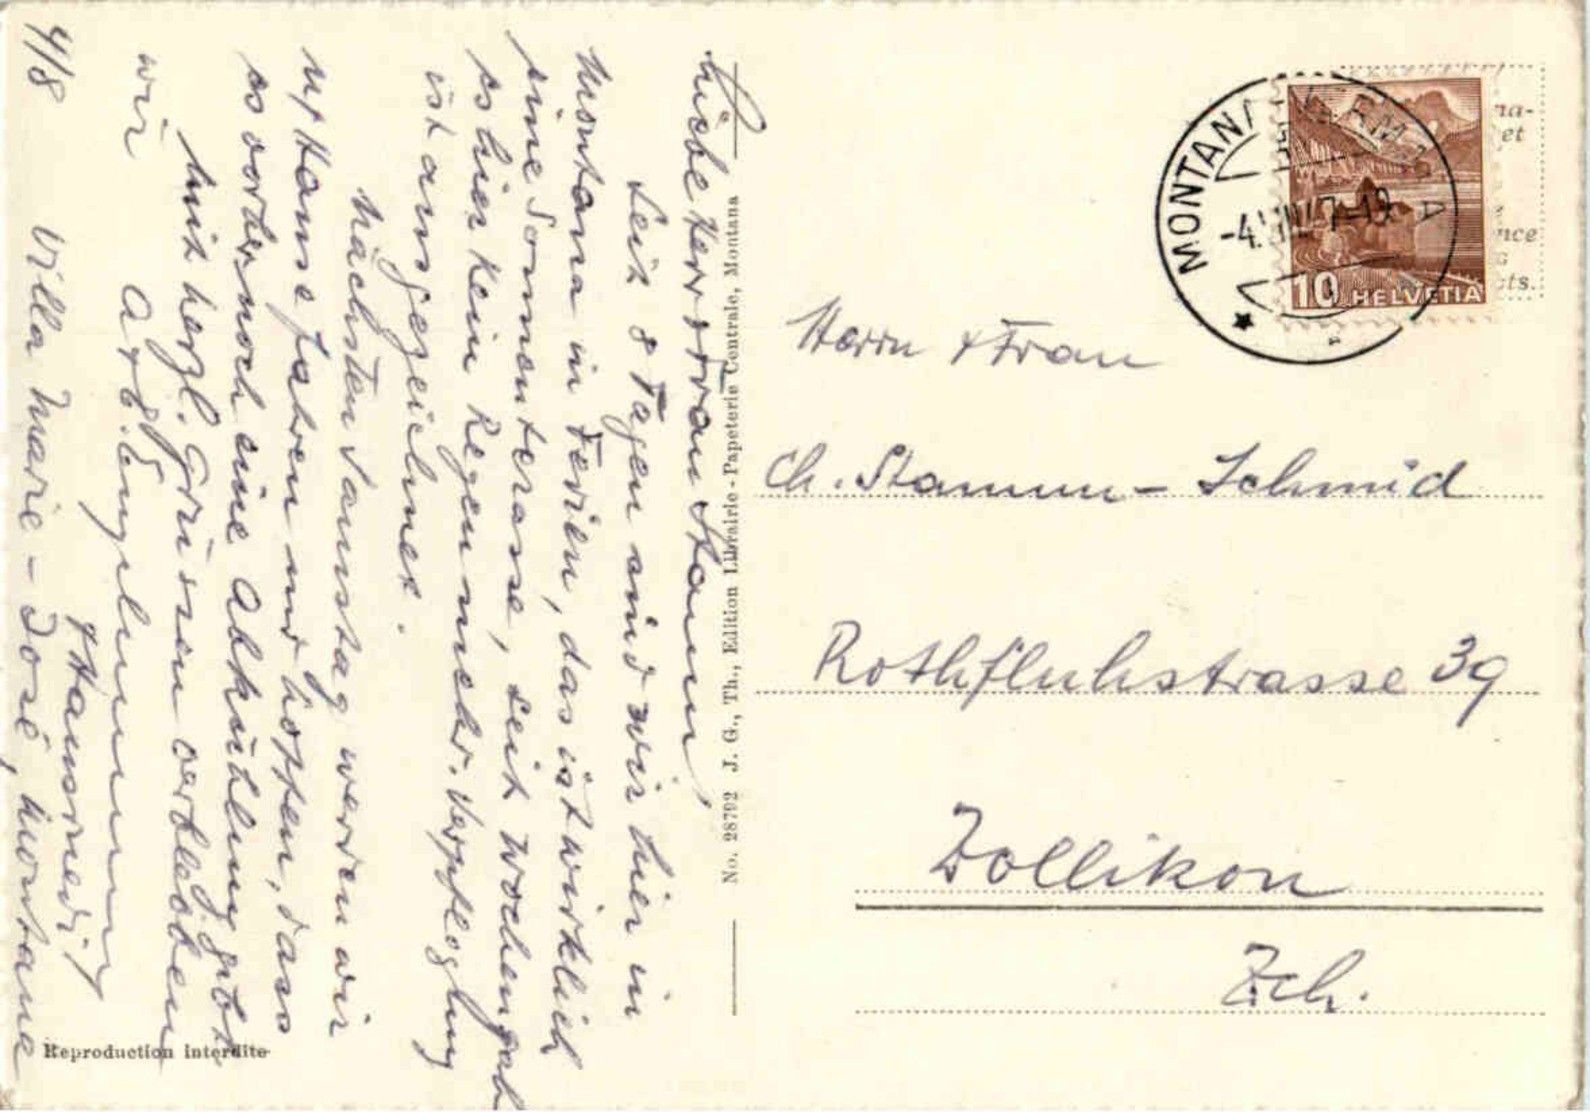 Liebe Herr & Frau Stamm,
Seit 8 Tagen sind wir hier in
Montana in Ferien, das ist wirklich
eine Sonnenterasse, seit Wochen gab
es hier kein Regen mehr. Verpflegung
ist ausgezeichnet.
Nächsten Samstag werden wir
n/ Hause fahren und hoffen, dass
es vorher noch eine Abkühlung gibt
Mit herzl. Grüssen verbleiben
wir
& Hausmedi
Villa Marie-José, Montana
4/8
No. 28792 J. G., Th., Edition Librairie-Papeterie Centrale, Montana
Reproduction interdite
MONTANA VERMALA
-4.VIII.47-19
10 HELVETIA
Herrn & Frau
Ch. Stamm-Schmid
Rothfluhstrasse 39
Zollikon
Zch.